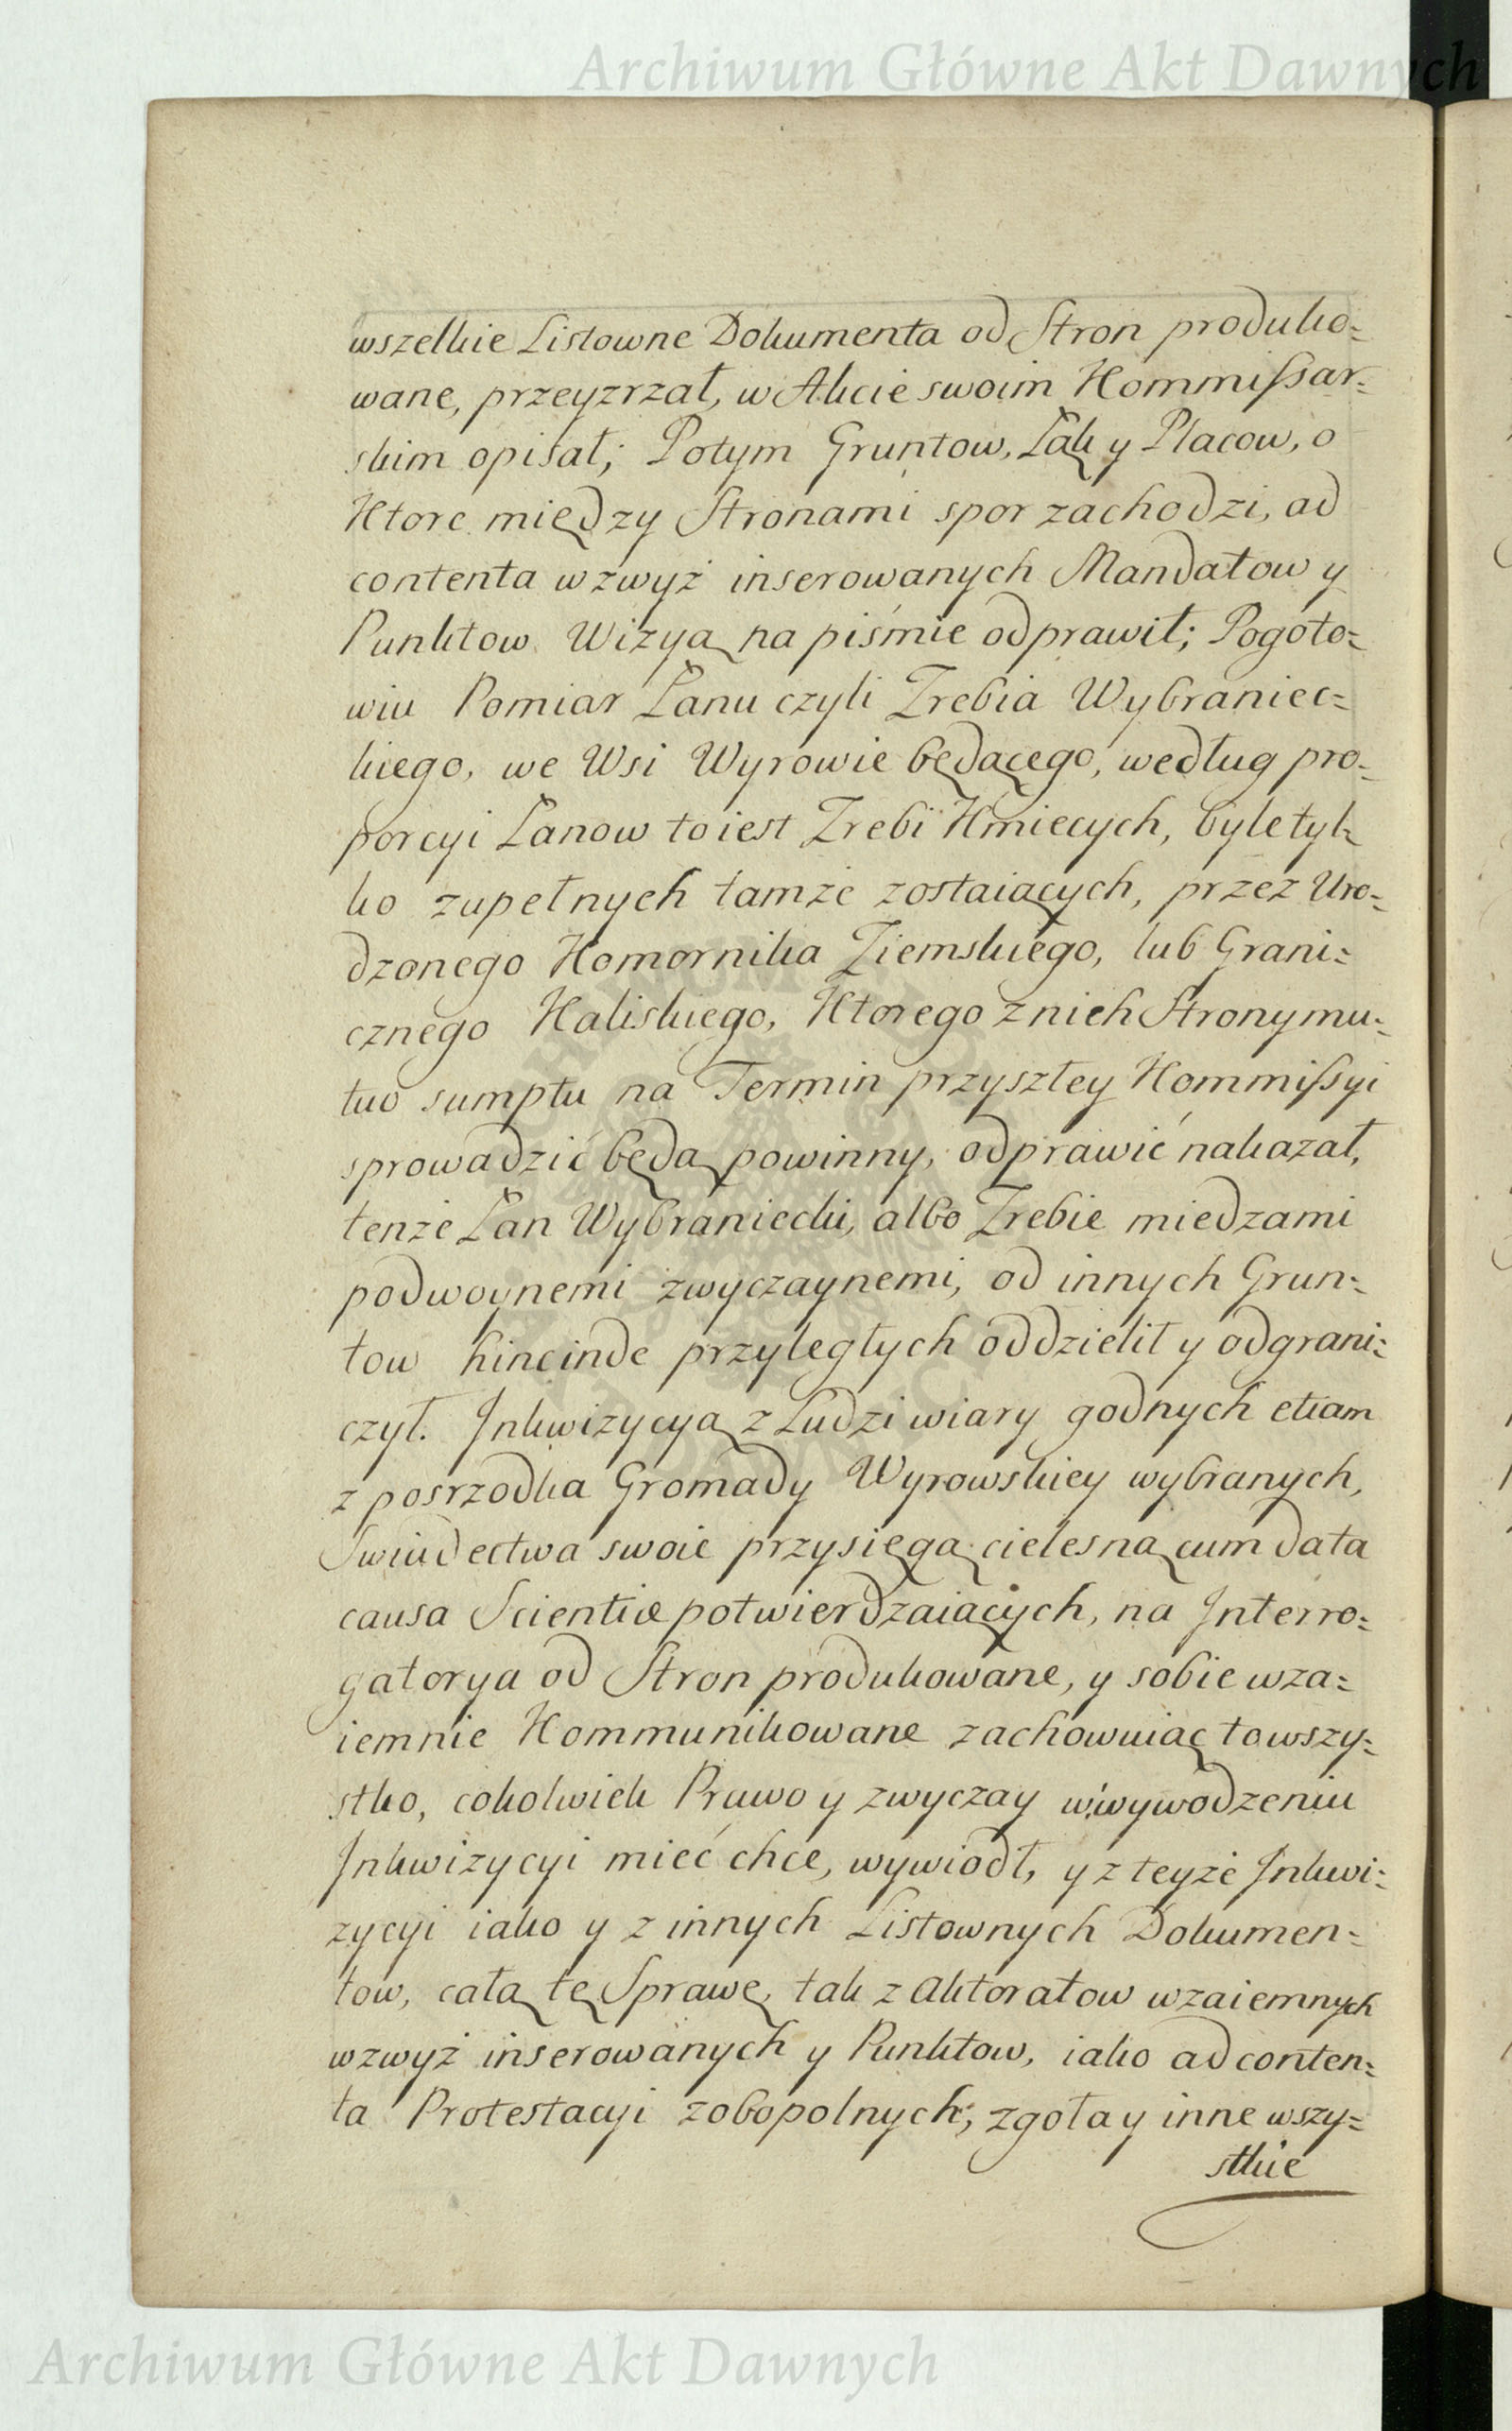 Archiwum Główne Akt Dawnych
wszelkie Listowne Dokumenta od Stron produko=
wane, przeyzrzał, w Akcie swoim Kommissar=
skim opisał; Potym Gruntow, Łąk y Placow, o
Ktore między Stronami spor zachodzi, ad
contenta wzwyż inserowanych Mandatow y
Punktow Wizyą na piśmie odprawił; Pogoto=
wiu Pomiar Łanu czyli Zrebia Wybraniec=
kiego, we Wsi Wyrowie będącego, według pro=
porcyi Łanow to iest Zrebi Kmiecych, byle tyl=
ko zupełnych tamże zostaiących, przez Uro=
dzonego Komornika Ziemskiego, lub Grani=
cznego Kaliskiego, Ktorego z nich Strony mu=
tuo sumptu na Termin przyszłey Kommissyi
sprowadzić będą powinny, odprawić nakazał,
tenże Łan Wybraniecki, albo Zrebie miedzami
podwoynemi zwyczaynemi, od innych Grun=
tow hincinde przyległych oddzielił y odgrani=
czył. Inkwizycyą z Ludzi wiary godnych etiam
z posrzodka Gromady Wyrowskiey wybranych,
Swiadectwa swoie przysięgą cielesną cum data
causa Scientiæ potwierdzaiących, na Interro=
gatorya od Stron produkowane, y sobie wza=
iemnie Kommunikowane zachowuiąc to wszy=
stko, cokolwiek Prawo y zwyczay w wywodzeniu
Inkwizycyi mieć chce, wywiodł, y z teyże Inkwi=
zycyi iako y z innych Listownych Dokumen=
tow, całą tę Sprawę, tak z Aktoratow wzaiemnych
wzwyż inserowanych y Punktow, iako ad conten=
ta Protestacyi zobopolnych; zgoła y inne wszy=
stkie
Archiwum Główne Akt Dawnych